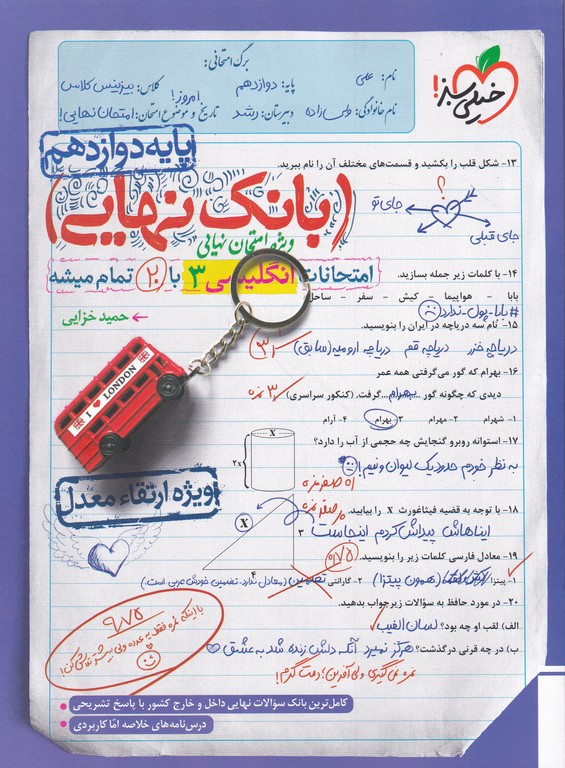 برگ امتحانی:
نام: علی
پایه: دوازدهم
کلاس: بیزینس کلاس
نام خانوادگی: ولی‌زاده
دبیرستان: رشد
تاریخ و موضوع امتحان: امروز! امتحان نهایی!
خیلی سبز!
پایه دوازدهم
(بانک نهایی)
ویژه امتحان نهایی
امتحانات انگلیسی ۳ با ۲۰ تمام میشه
حمید خزایی
I ♥ LONDON
ویژه ارتقاء معدل
۱۳- شکل قلب را بکشید و قسمت‌های مختلف آن را نام ببرید.
؟
جای تو
جای قبلی
۱۴- با کلمات زیر جمله بسازید.
بابا - هواپیما - کیش - سفر - ساحل
#بابا-پول-ندارد
۱۵- نام سه دریاچه در ایران را بنویسید.
دریاچه خزر دریاچه قم دریاچه ارومیه (سابق)
۱۶- بهرام که گور می‌گرفتی همه عمر
دیدی که چگونه گور ...بهرام... گرفت. (کنکور سراسری)
۱- شهرام ۲- مهرام ۳- بهرام ۴- آرام
۱۷- استوانه روبرو گنجایش چه حجمی از آب را دارد؟
X
2X
به نظر خودم حدود یک لیوان و نیم!
۱۸- با توجه به قضیه فیثاغورث X را بیابید.
ایناهاش پیداش کردم اینجاست
X
۳
۴
۱۹- معادل فارسی کلمات زیر را بنویسید.
۱- پیتزا (همون پیتزا) ۲- گارانتی تضمین (معادل ندارد. تضمین خودش عربی است.)
۲۰- در مورد حافظ به سؤالات زیر جواب بدهید.
الف) لقب او چه بود؟ لسان الغیب
ب) در چه قرنی درگذشت؟ هرگز نمیرد آنکه دلش زنده شد به عشق
نمره نمی‌گیری ولی آفرین؛ دمت گرم!
۹/۷۵
کامل‌ترین بانک سؤالات نهایی داخل و خارج کشور با پاسخ تشریحی
درس‌نامه‌های خلاصه امّا کاربردی